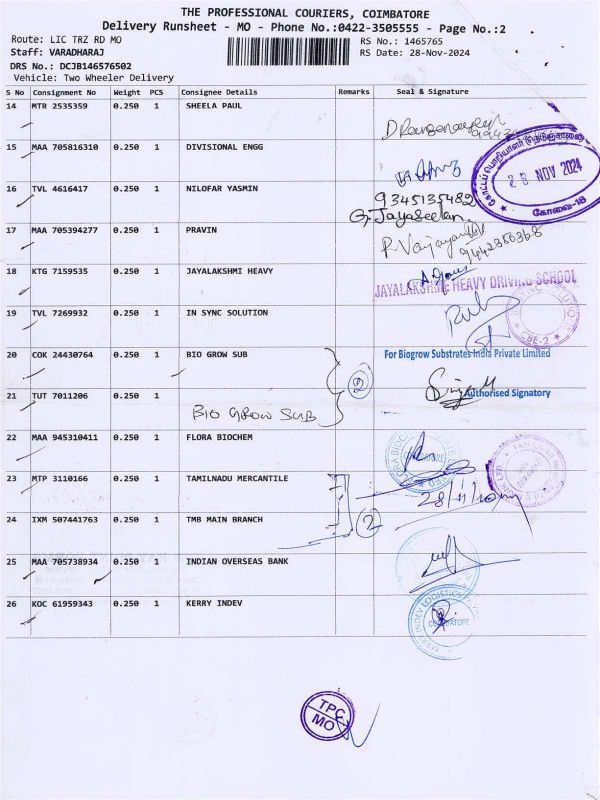 THE PROFESSIONAL COURIERS, COIMBATORE
Delivery Runsheet - MO - Phone No.:0422-3505555 - Page No.:2
Route: LIC TRZ RD MO
RS No.: 1465765
Staff: VARADHARAJ
RS Date: 28-Nov-2024
DRS No.: DCJB146576502
Vehicle: Two Wheeler Delivery
S No Consignment No Weight PCS Consignee Details Remarks Seal & Signature
14 MTR 2535359 0.250 1 SHEELA PAUL
15 MAA 705816310 0.250 1 DIVISIONAL ENGG
28 NOV 2024
கோவை-18
16 TVL 4616417 0.250 1 NILOFAR YASMIN
9345135482
G. Jayaseelan
17 MAA 705394277 0.250 1 PRAVIN
18 KTG 7159535 1 JAYALAKSHMI HEAVY
JAYALAKSHMI HEAVY DRIVING SCHOOL
19 TVL 7269932 0.250 1 IN SYNC SOLUTION
CBE-2
20 COK 24430764 0.250 1 BIO GROW SUB
2
For Biogrow Substrates India Private Limited
Authorised Signatory
21 TUT 7011206 0.250 1
BIO GROW SUB
22 MAA 945310411 0.250 1 FLORA BIOCHEM
23 MTP 3110166 0.250 1 TAMILNADU MERCANTILE
2
24 IXM 507441763 0.250 1 TMB MAIN BRANCH
25 MAA 705738934 0.250 1 INDIAN OVERSEAS BANK
26 KOC 61959343 0.250 1 KERRY INDEV
COIMBATORE
TPC
MO